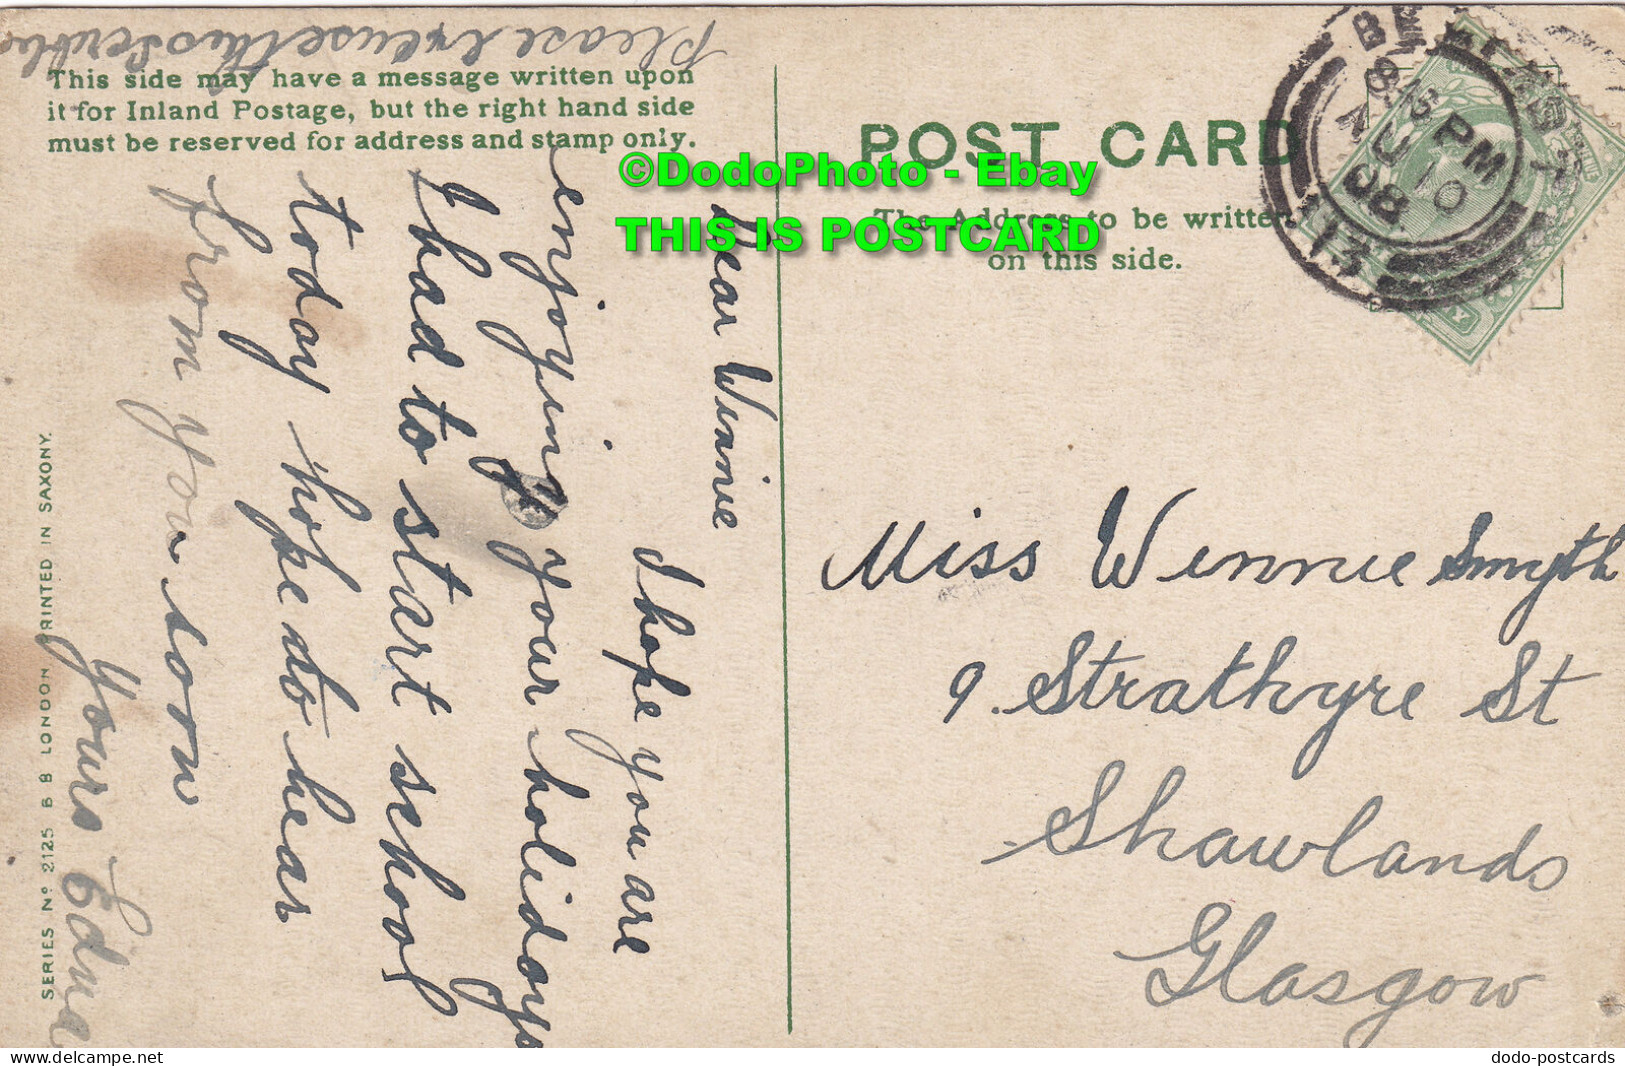 Please excuse this scribble
This side may have a message written upon
it for Inland Postage, but the right hand side
must be reserved for address and stamp only.
Dear Winnie
I hope you are
enjoying your holidays
I had to start school
today hope do hear
from you soon
Yours Edna
SERIES Nº 2125 B B LONDON PRINTED IN SAXONY.
POST CARD
The Address to be written
on this side.
3 PM
AU 10
08
13
Miss Winnie Smyth
9. Strathyre St
Shawlands
Glasgow
©DodoPhoto - Ebay
THIS IS POSTCARD
www.delcampe.net
dodo-postcards